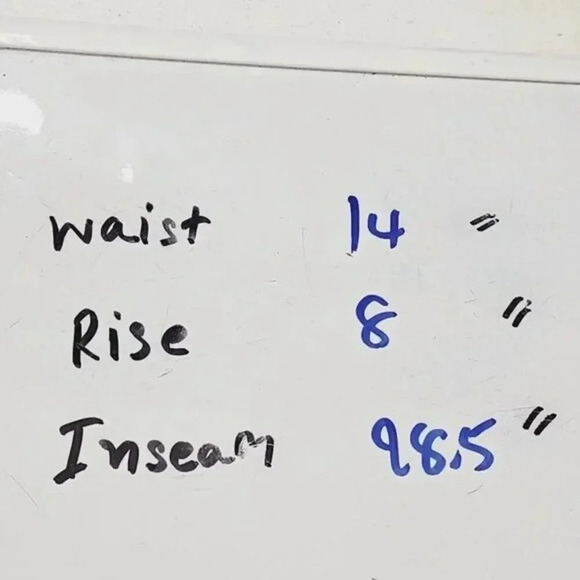 Waist 14 "
Rise 8 "
Inseam 98.5 "